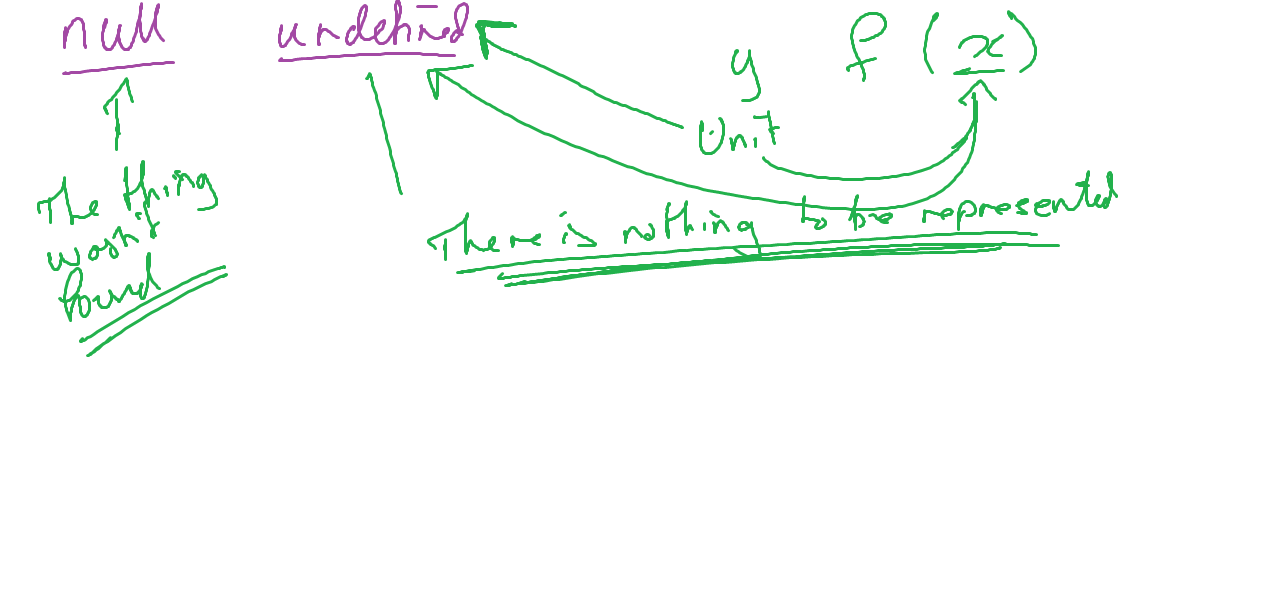 null undefined y f (x)
Unit
The thing
wasn't
found
There is nothing to be represented